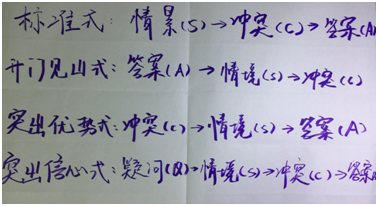 标准式：情景(S)→冲突(C)→答案(A)
开门见山式：答案(A)→情境(S)→冲突(C)
突出优势式：冲突(C)→情境(S)→答案(A)
突出信心式：疑问(Q)→情境(S)→冲突(C)→答案